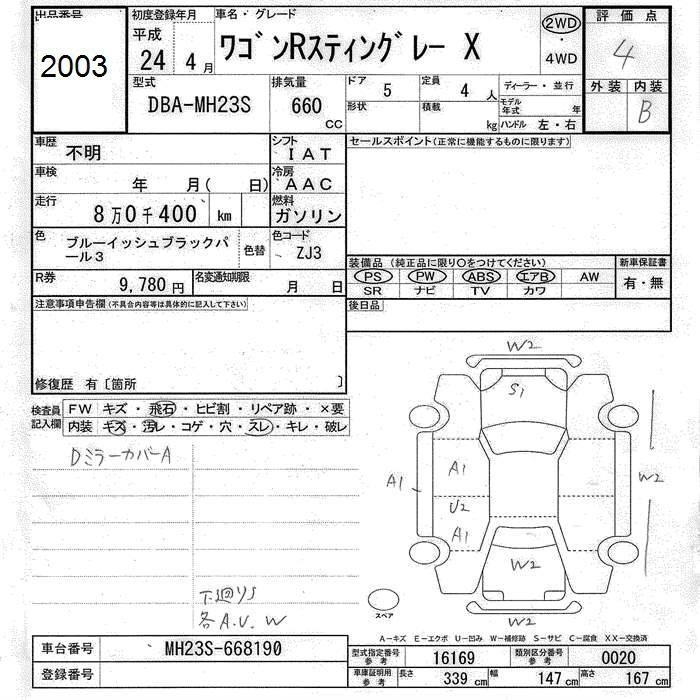 出品番号
2003
初度登録年月
平成
24 4月
車名・グレード
ワゴンRスティングレー X
2WD
・
4WD
評価点
4
外装 内装
B
型式
DBA-MH23S
排気量
660
CC
ドア 5
定員 4 人
形状
積載 kg
ディーラー・並行
モデル年式 年
ハンドル 左・右
車歴 不明
シフト IAT
車検 年 月( 日)
冷房 AAC
走行 8万0千400 km
燃料 ガソリン
色 ブルーイッシュブラックパール3
色替
色コード ZJ3
R券 9,780円
名変通知期限 月 日
セールスポイント(正常に機能するものに限ります)
装備品 (純正品に限り○をつけてください)
新車保証書
PS PW ABS エアB AW
SR ナビ TV カワ
有・無
後日品
注意事項申告欄(不具合内容等は具体的に記入して下さい)
修復歴 有〔箇所 〕
検査員記入欄
FW キズ・飛石・ヒビ割・リペア跡・×要
内装 キズ・汚レ・コゲ・穴・スレ・キレ・破レ
DミラーカバーA
下廻りS
各A.U.W
W2
S1
A1
A1
U2
A1
W2
W2
W2
スペア
A-キズ E-エクボ U-凹み W-補修跡 S-サビ C-腐食 XX-交換済
車台番号 MH23S-668190
登録番号
型式指定番号参考 16169
類別区分番号参考 0020
車庫証明用参考 長さ 339 cm 幅 147 cm 高さ 167 cm